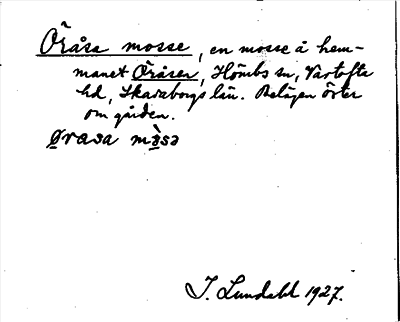 Öråsa mosse, en mosse å hem-
manet Öråsen, Hömbs sn, Vartofta
hd, Skaraborgs län. Belägen öster
om gården.
øvasa mòsa
I. Lundahl 1927.